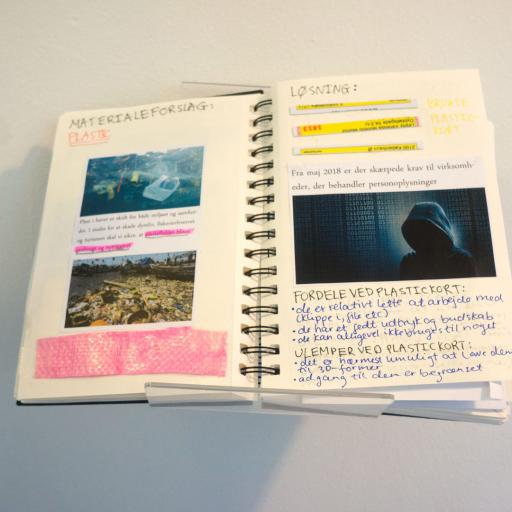 MATERIALEFORSLAG:
PLASTIC
Plast i havet er skidt for både miljøet og
der. I stedet for at skade dyreliv,
og turismen skal vi sikre, at
LØSNING:
BRUGTE
PLASTIC-
KORT
1813
2100 København Ø
Fra maj 2018 er der skærpede krav til virksomh-
eder, der behandler personoplysninger
FORDELE VED PLASTICKORT:
• de er relativt lette at arbejde med
(klippe i, file etc)
• de har et fedt udtryk og budskab
• de kan alligevel ikke bruges til noget
ULEMPER VED PLASTICKORT:
• det er nærmest umuligt at lave dem
til 3D-former
• adgang til dem er begrænset